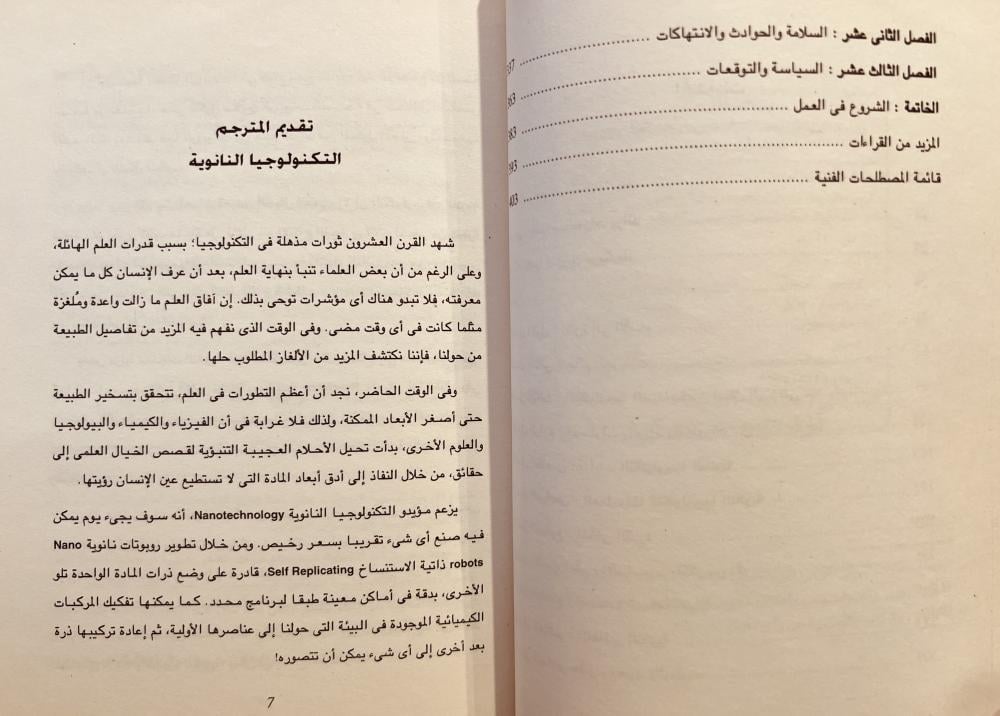 الفصل الثانى عشر : السلامة والحوادث والانتهاكات
الفصل الثالث عشر : السياسة والتوقعات
الخاتمة : الشروع فى العمل
المزيد من القراءات
قائمة المصطلحات الفنية 403
تقديم المترجم
التكنولوجيا النانوية
شهد القرن العشرون ثورات مذهلة فى التكنولوجيا؛ بسبب قدرات العلم الهائلة،
وعلى الرغم من أن بعض العلماء تنبأ بنهاية العلم، بعد أن عرف الإنسان كل ما يمكن
معرفته، فلا تبدو هناك أى مؤشرات توحى بذلك. إن آفاق العلم ما زالت واعدة ومُلغزة
مثلما كانت فى أى وقت مضى. وفى الوقت الذى نفهم فيه المزيد من تفاصيل الطبيعة
من حولنا، فإننا نكتشف المزيد من الألغاز المطلوب حلها.
وفى الوقت الحاضر، نجد أن أعظم التطورات فى العلم، تتحقق بتسخير الطبيعة
حتى أصغر الأبعاد الممكنة، ولذلك فلا غرابة فى أن الفيزياء والكيمياء والبيولوجيا
والعلوم الأخرى، بدأت تحيل الأحلام العجيبة التنبؤية لقصص الخيال العلمى إلى
حقائق، من خلال النفاذ إلى أدق أبعاد المادة التى لا تستطيع عين الإنسان رؤيتها.
يزعم مؤيدو التكنولوجيا النانوية Nanotechnology، أنه سوف يجىء يوم يمكن
فيه صنع أى شىء تقريبا بسعر رخيص. ومن خلال تطوير روبوتات نانوية Nano
robots ذاتية الاستنساخ Self Replicating، قادرة على وضع ذرات المادة الواحدة تلو
الأخرى، بدقة فى أماكن معينة طبقا لبرنامج محدد. كما يمكنها تفكيك المركبات
الكيميائية الموجودة فى البيئة التى حولنا إلى عناصرها الأولية، ثم إعادة تركيبها ذرة
بعد أخرى إلى أى شىء يمكن أن نتصوره!
7